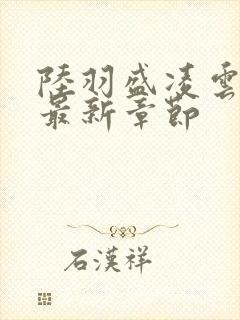 陸羽盛凌雲
最新章節
石漢祥